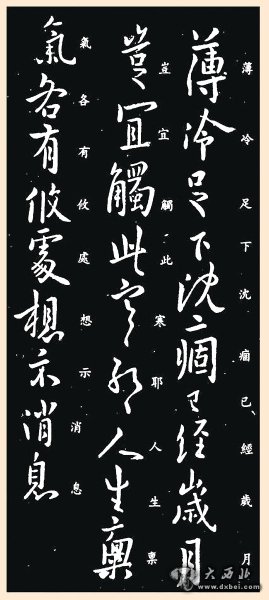 薄冷足下沈痼已經歲月
豈宜觸此寒耶人生禀
氣各有攸處想示消息
薄冷足下沈痼已經歲月
豈宜觸此寒耶人生禀
氣各有攸處想示消息
大西北
www.dxbei.com